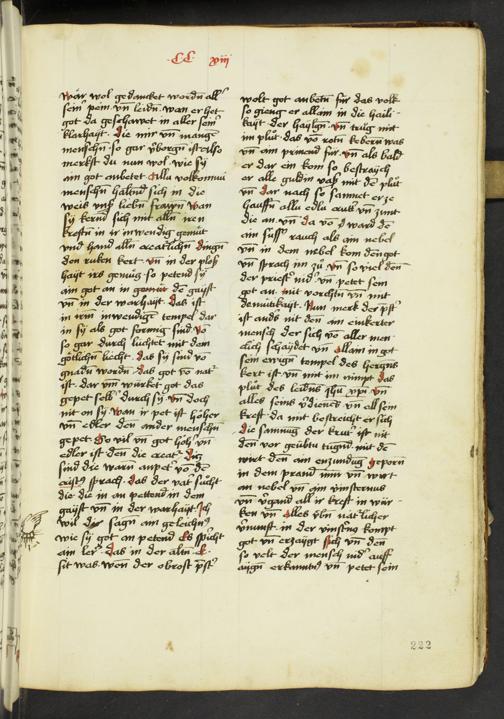 CC xiij
wär wol gedancket wordn̄ all'
sein' pein vn̄ leidn̄ wan er hot
got da geschawet in aller sein'
klarhayt. Die mir vn̄ mangē
menschn̄ so gar v'borgn̄ ist also
merkst du nun wol wie sy
ain got anbetet. Alle volkomnī
menschn̄ haltnd sich in die
weis vnß liebn̄ frawn̄ wan
sy kernd sich mit alln̄ iren
kreftn̄ in ir inwendig gemüt
vnd hand alln̄ creatlichn̄ dingn̄
den ruken kert vn̄ in der ploß
hayt irs gemüg so petend sy
ain got an in gemüt dē gayst
vn̄ in der warhayt. das ist
in irm̄ inwendigē tempel dar
in sy als got formig sind vō
so gar durch lüchtet mit dem
götlichn̄ liecht. das sy sind vō
gnadn̄ wordn̄. das got vō nat'
ist. dar vm̄ würket got das
gepet selb' durch sy vn̄ doch
nit on sy wan ir pet ist höher
vn̄ edler den ander menschn̄
gepet. So vil vn̄ got hoh' vn̄
edler ist den die creat'. Dis
sind die warn̄ anpet' vō dē
cristꝰ sprach. das der vat' sücht
die die in an pettend in dem
gayst vn̄ in der warhayt Ich
wil dir sagn̄ ain geleichnꝰ
wie sy got an petend Es spricht
ain ler'. das in der altn̄ e.
sit was. wen der obrost p'st'
wolt got anbetn̄ für das volk
so gieng er allain in die haili-
kayt der haylgn̄. vn̄ trüg mit
im plüt. das vō rotn̄ kelbern was
vn̄ ain prinend für. vn̄ als bald
er dar ein kom so bestraych
er alle guldin vaß mit dē plüt
vn̄ dar nach so samnet er ze
hauffn̄ allu edlu crut' vn̄ zunt
die an. vn̄ da vō ward dē
ain süss' rauch als ain nebel
vn̄ in dem nebel kom den got
vn̄ sprach im zu vn̄ so viel den̄
der priest' nid' vn̄ petet sein
got an. mit vorchtn̄ vn̄ mit
demütikayt. Nun merk der p'st'
ist ands nit den ain einkerter
mensch der sich vō aller men-
clich schaydet vn̄ allain in got
sein ewgn̄ tempel des hergns
kert ist vn̄ mit im nimpt das
plüt des leidns ihu xpi vn̄
alles seins v'diencs vn̄ all sein
kreft da mit bestreicht er sich
die samnug der krut' ist mit
den vor geübtn̄ tugnd. mit dē
wirt den ain enzundug geporn̄
in dem prand min̄ vn̄ wirt
an nebel vn̄ ain vinsternus
vn̄ v'gand all ir kreft in wür-
ken vn̄ alles ybn̄ nat'licher
v'nunft. in der vinst'nꝰ kompt
got vn̄ erzaygt sich vn̄ den
so velt der mensch nid' auff
aygn̄ erkantnꝰ vn̄ petet sein
222